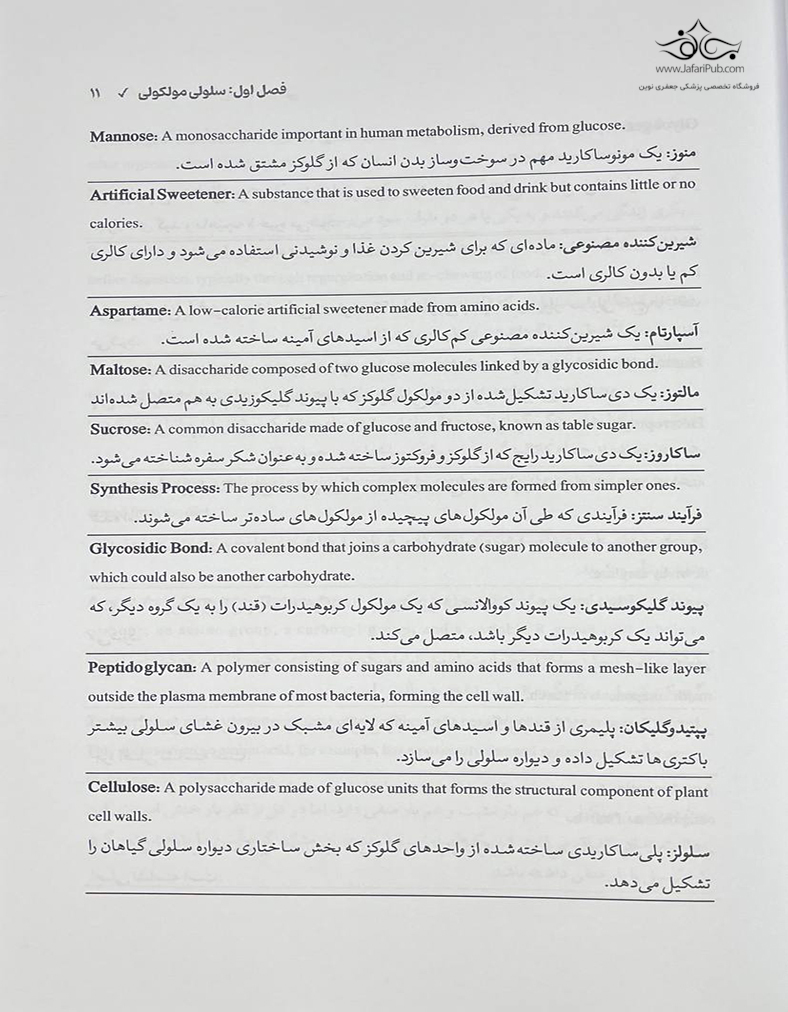 بقافی
www.JafariPub.com
فروشگاه تخصصی پزشکی جعفری نوین
فصل اول: سلولی مولکولی ✓ ۱۱
Mannose: A monosaccharide important in human metabolism, derived from glucose.
منوز: یک مونوساکارید مهم در سوخت‌وساز بدن انسان که از گلوکز مشتق شده است.
Artificial Sweetener: A substance that is used to sweeten food and drink but contains little or no
calories.
شیرین‌کننده مصنوعی: ماده‌ای که برای شیرین کردن غذا و نوشیدنی استفاده می‌شود و دارای کالری
کم یا بدون کالری است.
Aspartame: A low-calorie artificial sweetener made from amino acids.
آسپارتام: یک شیرین‌کننده مصنوعی کم‌کالری که از اسیدهای آمینه ساخته شده است.
Maltose: A disaccharide composed of two glucose molecules linked by a glycosidic bond.
مالتوز: یک دی‌ساکارید تشکیل‌شده از دو مولکول گلوکز که با پیوند گلیکوزیدی به هم متصل شده‌اند
Sucrose: A common disaccharide made of glucose and fructose, known as table sugar.
ساکاروز: یک دی‌ساکارید رایج که از گلوکز و فروکتوز ساخته شده و به عنوان شکر سفره شناخته می‌شود.
Synthesis Process: The process by which complex molecules are formed from simpler ones.
فرآیند سنتز: فرآیندی که طی آن مولکول‌های پیچیده از مولکول‌های ساده‌تر ساخته می‌شوند.
Glycosidic Bond: A covalent bond that joins a carbohydrate (sugar) molecule to another group,
which could also be another carbohydrate.
پیوند گلیکوسیدی: یک پیوند کووالانسی که یک مولکول کربوهیدرات (قند) را به یک گروه دیگر، که
می‌تواند یک کربوهیدرات دیگر باشد، متصل می‌کند.
Peptidoglycan: A polymer consisting of sugars and amino acids that forms a mesh-like layer
outside the plasma membrane of most bacteria, forming the cell wall.
پپتیدوگلیکان: پلیمری از قندها و اسیدهای آمینه که لایه‌ای مشبک در بیرون غشای سلولی بیشتر
باکتری‌ها تشکیل داده و دیواره سلولی را می‌سازد.
Cellulose: A polysaccharide made of glucose units that forms the structural component of plant
cell walls.
سلولز: پلی‌ساکاریدی ساخته‌شده از واحدهای گلوکز که بخش ساختاری دیواره سلولی گیاهان را
تشکیل می‌دهد.